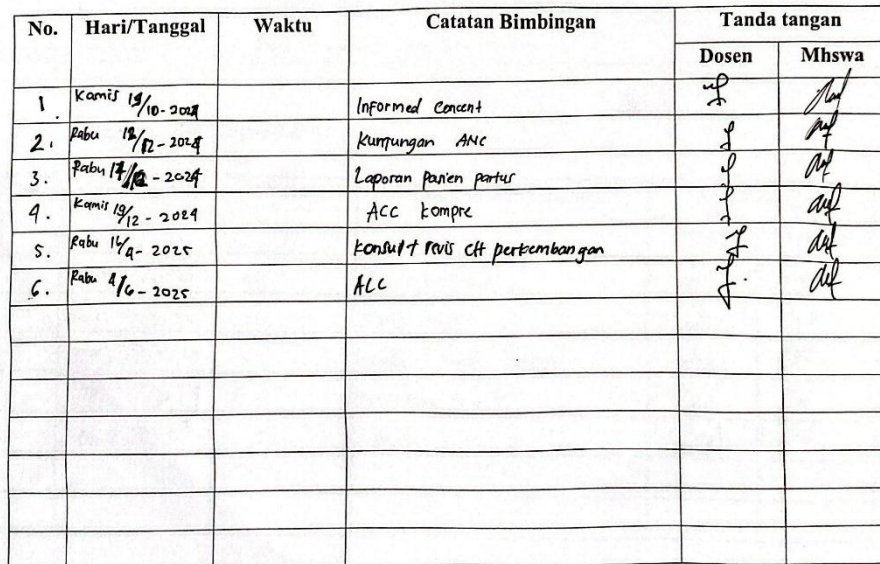 No. Hari/Tanggal Waktu Catatan Bimbingan Tanda tangan
Dosen Mhswa
1. Kamis /10-2024 Informed Concent
2. Rabu /12-2024 Kunjungan ANC
3. Rabu - 2024 Laporan pasien partus
4. Kamis 19/12 - 2024 ACC kompre
5. Rabu 16/4 - 2025 Konsult revis perkembangan
6. Rabu 4/6 - 2025 ACC